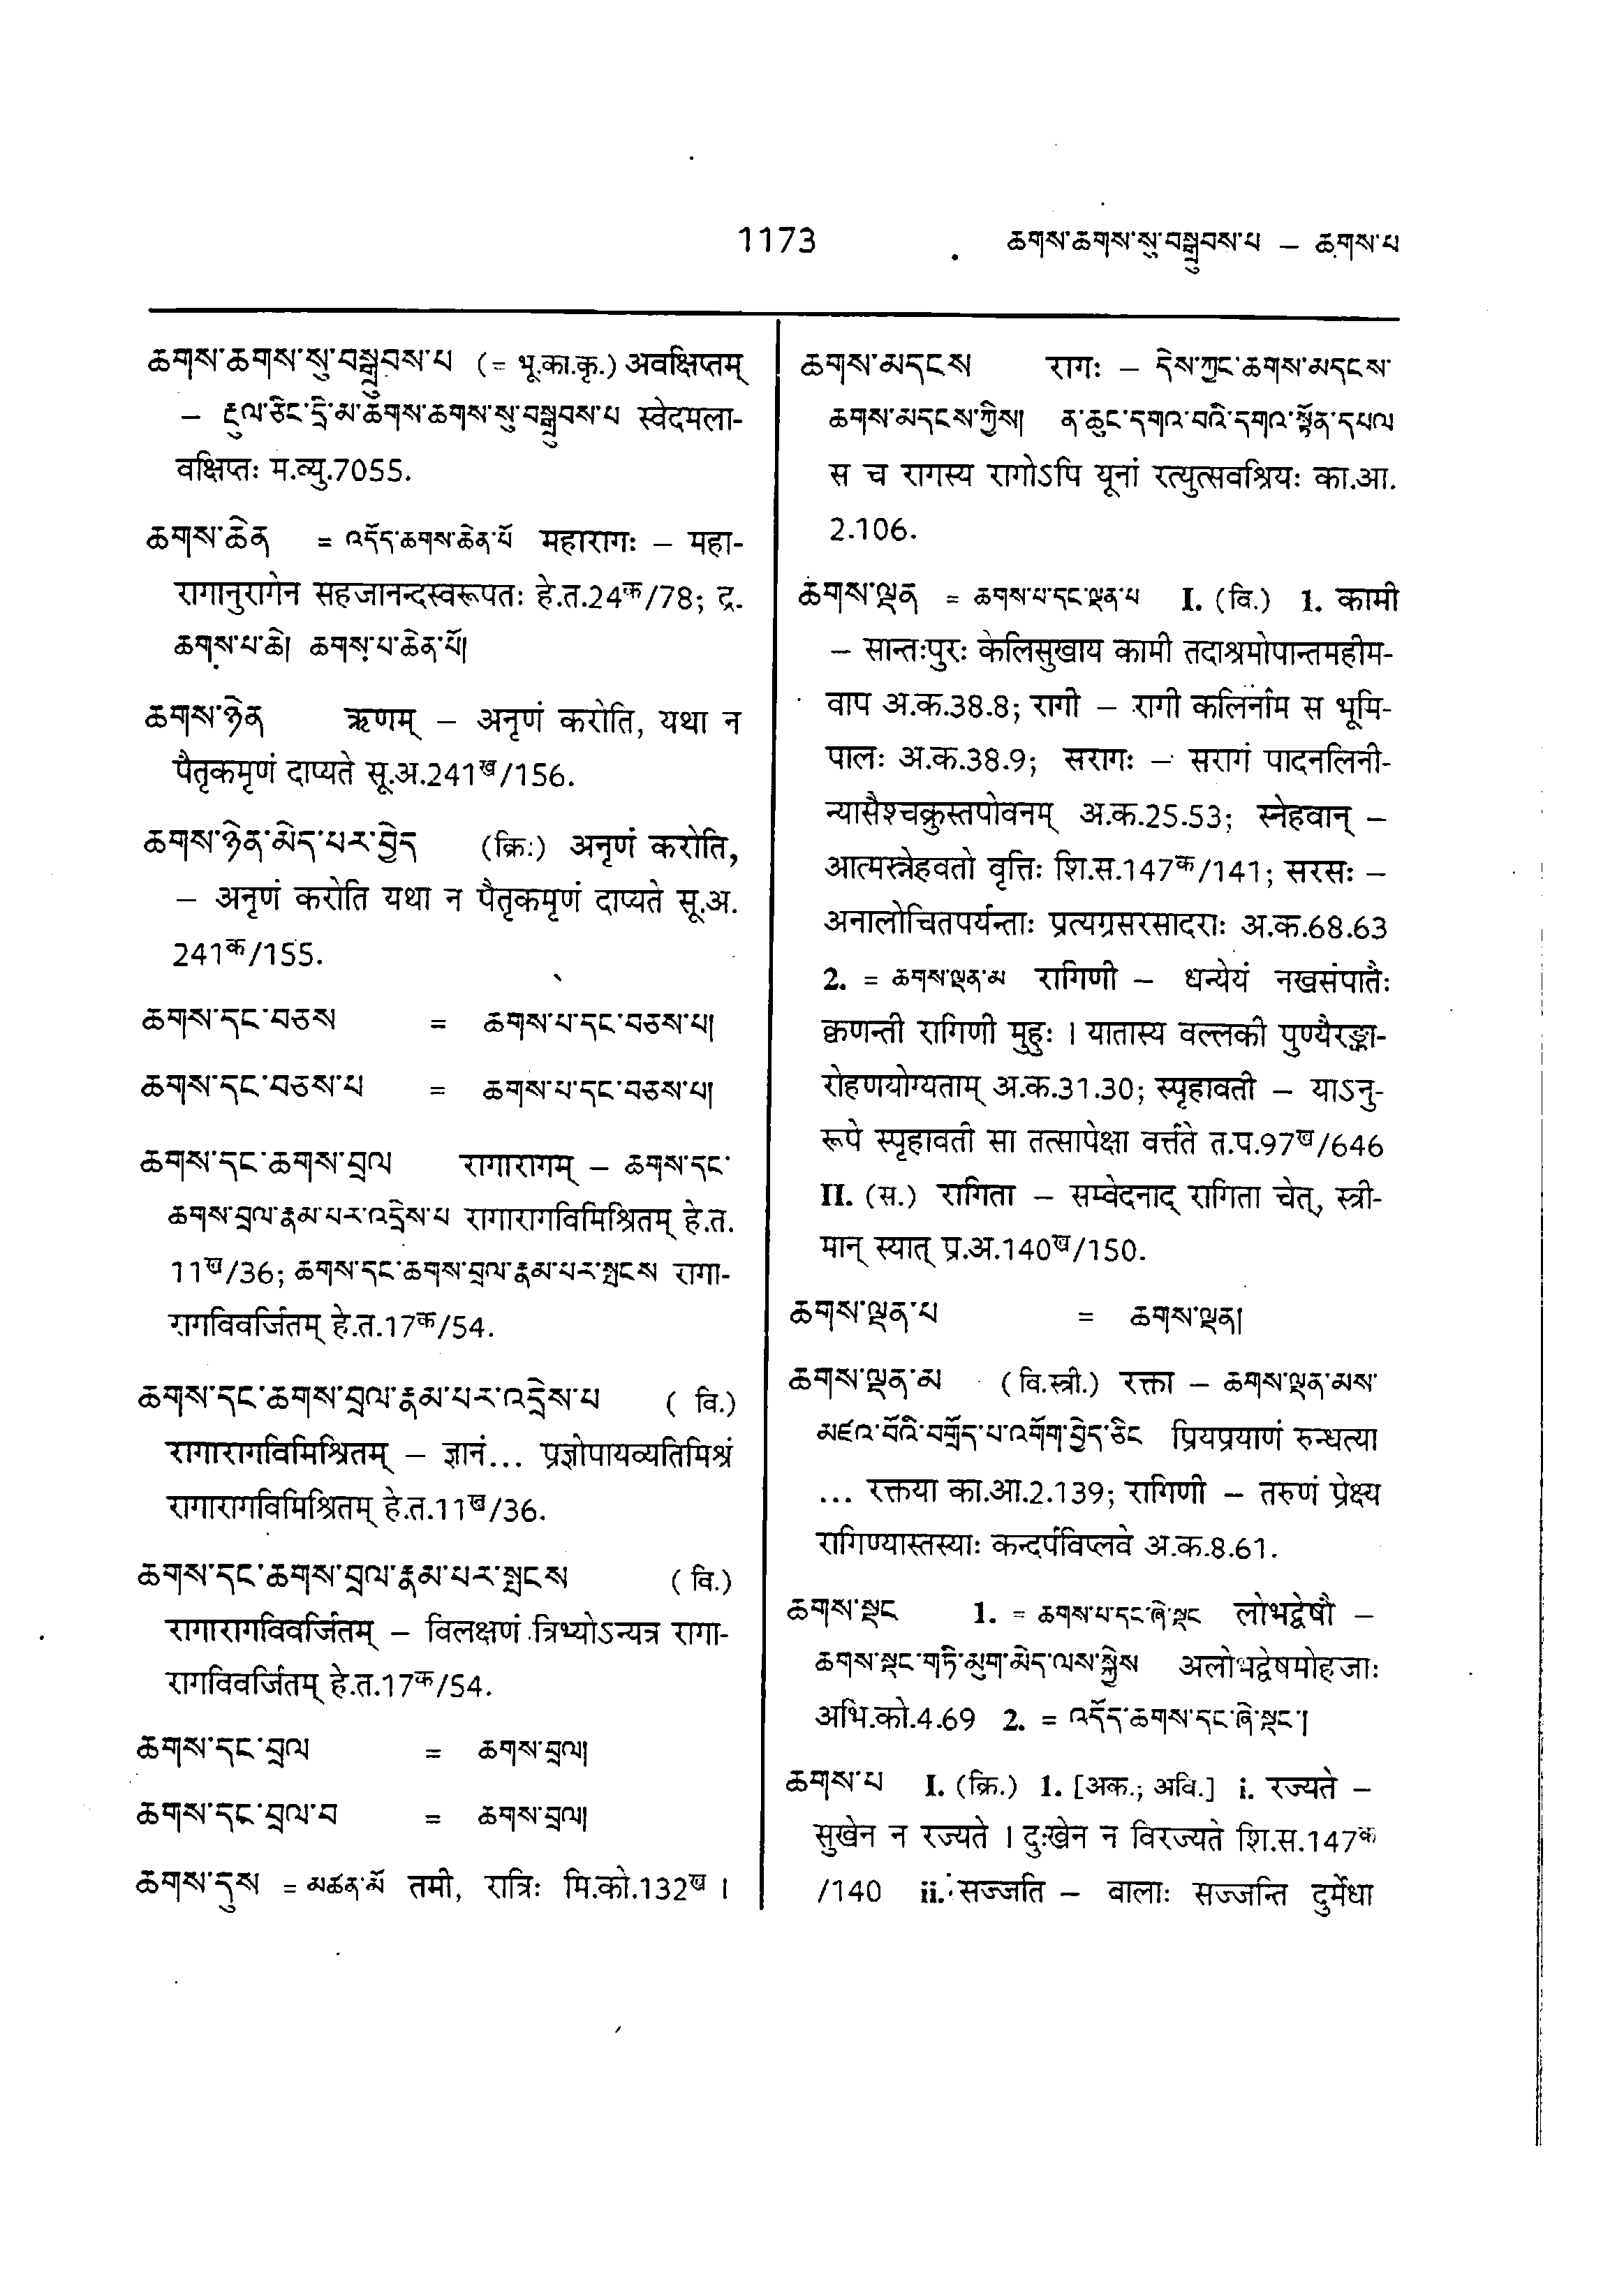 1173
ཆགས་ཆགས་སུ་བསྒྲུབས་པ – ཆགས་པ
ཆགས་ཆགས་སུ་བསྒྲུབས་པ (= भू.का.कृ.) अवक्षिप्तम्
– རྡུལ་ཅིང་དྲི་མ་ཆགས་ཆགས་སུ་བསྒྲུབས་པ स्वेदमला-
वक्षिप्तः म.व्यु.7055.
ཆགས་ཆེན = འདོད་ཆགས་ཆེན་པོ महारागः – महा-
रागानुरागेन सहजानन्दस्वरूपतः हे.त.24क/78; द्र.
ཆགས་པ་ཆེ། ཆགས་པ་ཆེན་པོ།
ཆགས་ཉེན ऋणम् – अनृणं करोति, यथा न
पैतृकमृणं दाप्यते सू.अ.241ख/156.
ཆགས་ཉེན་མེད་པར་བྱེད (क्रि.) अनृणं करोति,
– अनृणं करोति यथा न पैतृकमृणं दाप्यते सू.अ.
241क/155.
ཆགས་དང་བཅས = ཆགས་པ་དང་བཅས་པ།
ཆགས་དང་བཅས་པ = ཆགས་པ་དང་བཅས་པ།
ཆགས་དང་ཆགས་བྲལ रागारागम् – ཆགས་དང་
ཆགས་བྲལ་རྣམ་པར་འདྲེས་པ रागारागविमिश्रितम् हे.त.
11ख/36; ཆགས་དང་ཆགས་བྲལ་རྣམ་པར་སྤངས रागा-
रागविवर्जितम् हे.त.17क/54.
ཆགས་དང་ཆགས་བྲལ་རྣམ་པར་འདྲེས་པ (वि.)
रागारागविमिश्रितम् – ज्ञानं... प्रज्ञोपायव्यतिमिश्रं
रागारागविमिश्रितम् हे.त.11ख/36.
ཆགས་དང་ཆགས་བྲལ་རྣམ་པར་སྤངས (वि.)
रागारागविवर्जितम् – विलक्षणं त्रिभ्योऽन्यत्र रागा-
रागविवर्जितम् हे.त.17क/54.
ཆགས་དང་བྲལ = ཆགས་བྲལ།
ཆགས་དང་བྲལ་བ = ཆགས་བྲལ།
ཆགས་དུས = མཚན་མོ तमी, रात्रिः मि.को.132ख ।
ཆགས་མདངས रागः – དེས་ཀྱང་ཆགས་མདངས་
ཆགས་མདངས་ཀྱིས། ན་ཆུང་དགའ་བའི་དགའ་སྟོན་དཔལ
स च रागस्य रागोऽपि यूनां रत्युत्सवश्रियः का.आ.
2.106.
ཆགས་ལྡན = ཆགས་པ་དང་ལྡན་པ I. (वि.) 1. कामी
– सान्तःपुरः केलिसुखाय कामी तदाश्रमोपान्तमहीम-
वाप अ.क.38.8; रागी – रागी कलिर्नाम स भूमि-
पालः अ.क.38.9; सरागः – सरागं पादनलिनी-
न्यासैश्चक्रुस्तपोवनम् अ.क.25.53; स्नेहवान् –
आत्मस्नेहवतो वृत्तिः शि.स.147क/141; सरसः –
अनालोचितपर्यन्ताः प्रत्यग्रसरसादराः अ.क.68.63
2. = ཆགས་ལྡན་མ रागिणी – धन्येयं नखसंपातैः
क्वणन्ती रागिणी मुहुः । यातास्य वल्लकी पुण्यैरङ्का-
रोहणयोग्यताम् अ.क.31.30; स्पृहावती – याऽनु-
रूपे स्पृहावती सा तत्सापेक्षा वर्त्तते त.प.97ख/646
II. (स.) रागिता – सम्वेदनाद् रागिता चेत्, स्त्री-
मान् स्यात् प्र.अ.140ख/150.
ཆགས་ལྡན་པ = ཆགས་ལྡན།
ཆགས་ལྡན་མ (वि.स्त्री.) रक्ता – ཆགས་ལྡན་མས་
མཛའ་བོའི་བགྲོད་པ་འགོག་བྱེད་ཅིང प्रियप्रयाणं रुन्धत्या
... रक्तया का.आ.2.139; रागिणी – तरुणं प्रेक्ष्य
रागिण्यास्तस्याः कन्दर्पविप्लवे अ.क.8.61.
ཆགས་སྡང 1. = ཆགས་པ་དང་ཞེ་སྡང लोभद्वेषौ –
ཆགས་སྡང་གཏི་མུག་མེད་ལས་སྐྱེས अलोभद्वेषमोहजाः
अभि.को.4.69 2. = འདོད་ཆགས་དང་ཞེ་སྡང་།
ཆགས་པ I. (क्रि.) 1. [अक.; अवि.] i. रज्यते –
सुखेन न रज्यते । दुःखेन न विरज्यते शि.स.147क
/140 ii. सज्जति – बालाः सज्जन्ति दुर्मेधा